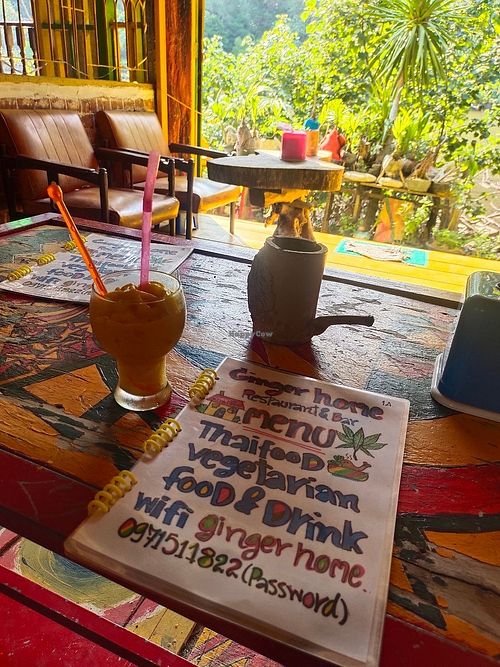 Ginger home
Restaurant & Bar
1A
MENU
Thai food
vegetarian
food & Drink
wifi ginger home
0971511822 (Password)
HappyCow